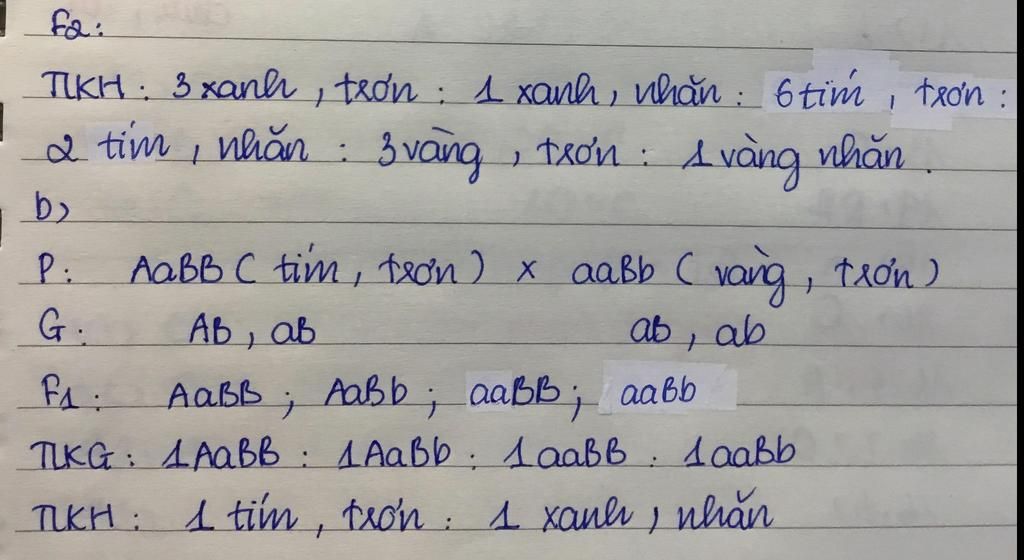 F2:
TLKH: 3 xanh, trơn: 1 xanh, nhăn: 6 tím, trơn:
2 tím, nhăn: 3 vàng, trơn: 1 vàng nhăn.
b)
P: AaBB (tím, trơn) x aaBb (vàng, trơn)
G: AB, aB aB, ab
F1: AaBB; AaBb; aaBB; aaBb
TLKG: 1AaBB: 1AaBb: 1aaBB: 1aaBb
TLKH: 1 tím, trơn: 1 xanh, nhăn